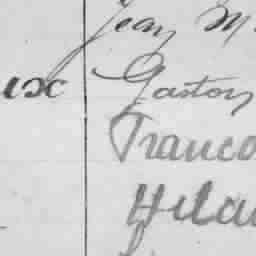 Jean M
ux Gaston
Franco
Hila